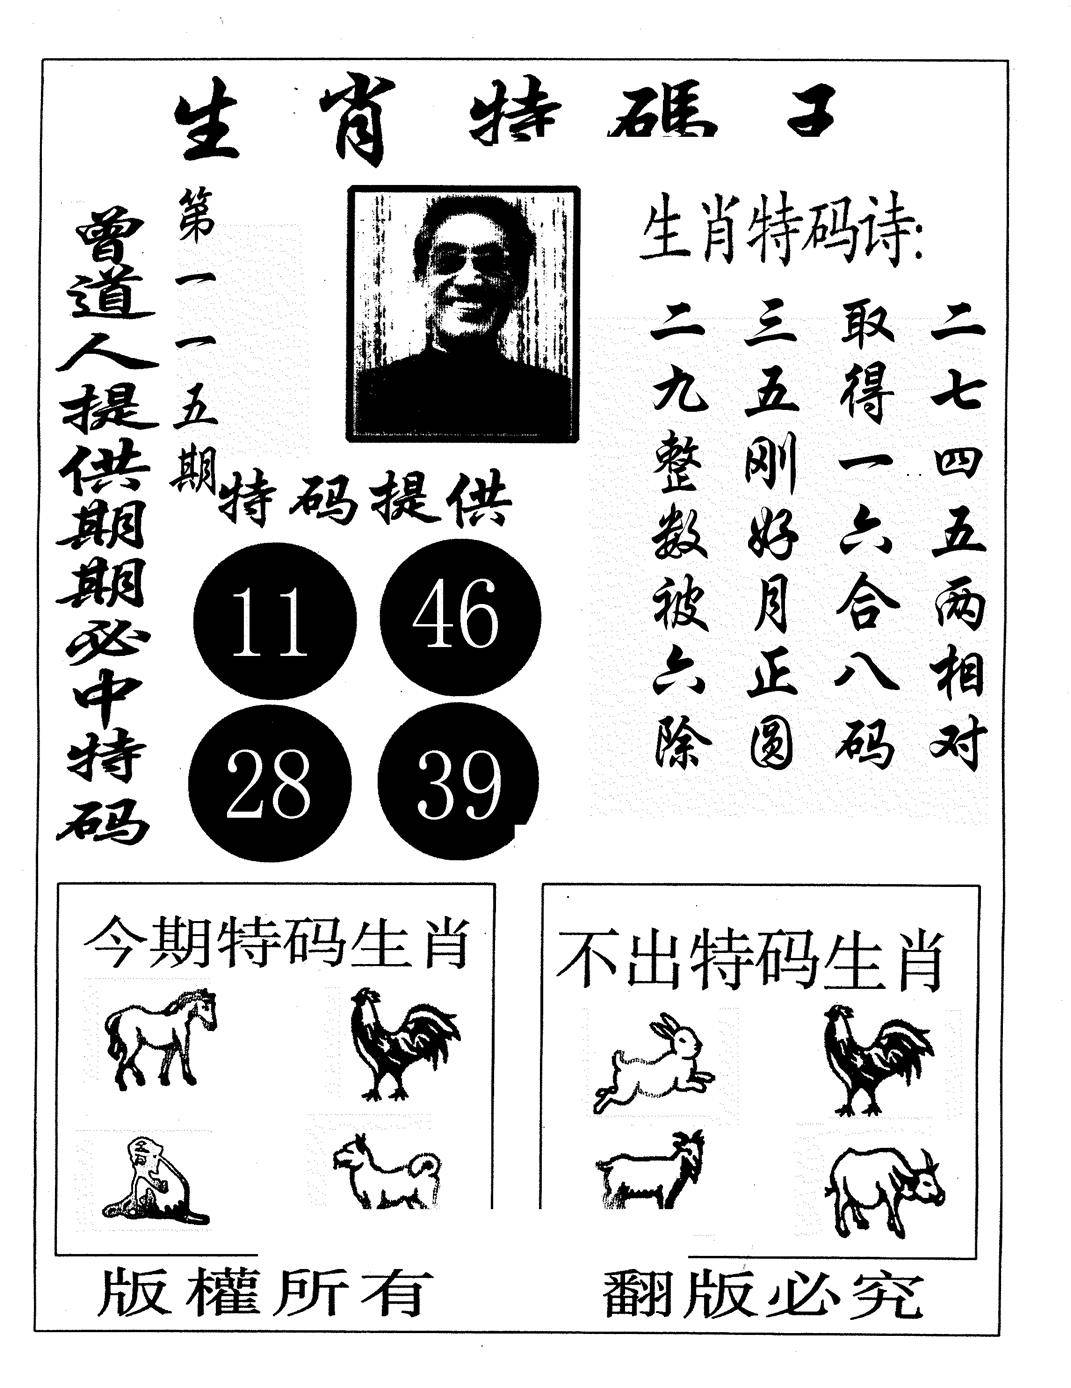 生肖特碼
曾道人提供期期必中特码
第一一五期
生肖特码诗:
二七四五两相对
取得一六合八码
三五刚好月正圆
二九整数被六除
特码提供
11 46
28 39
今期特码生肖
不出特码生肖
版權所有
翻版必究